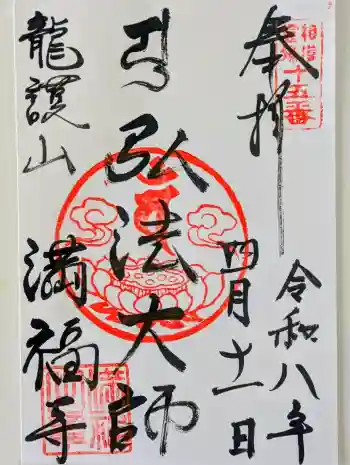 奉拝
十五番
令和八年
四月十一日
弘法大師
龍護山
満福寺